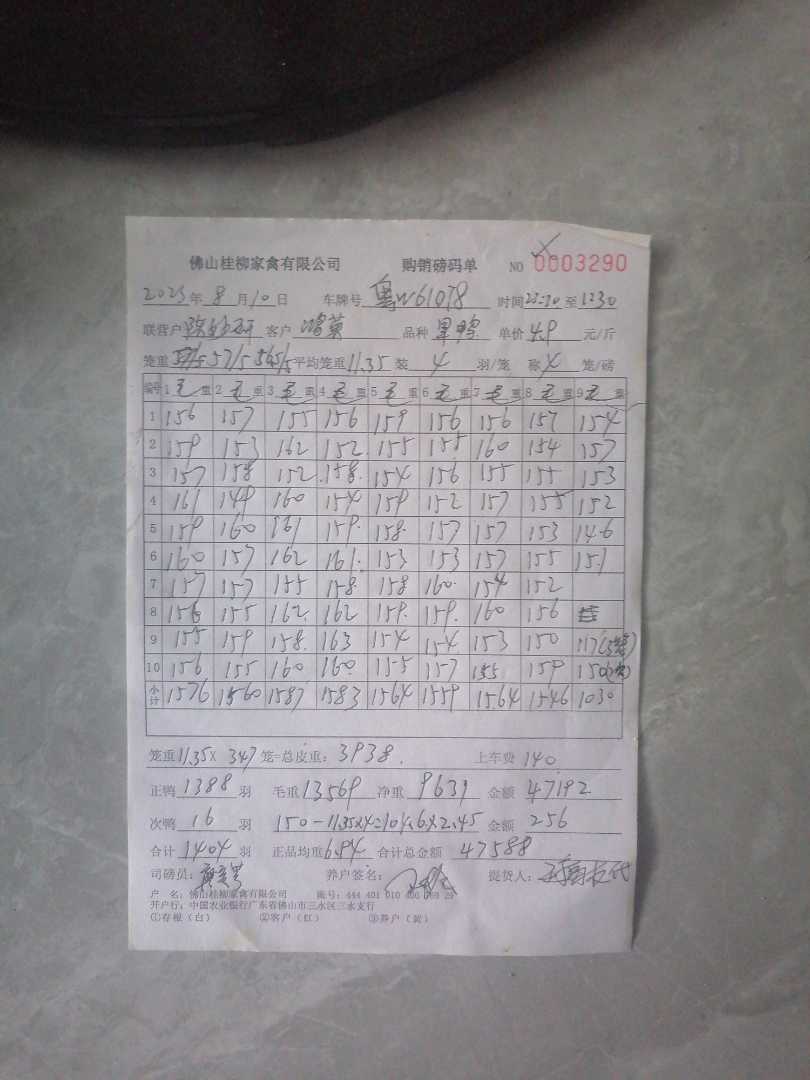 佛山桂柳家禽有限公司 购销磅码单 NO 0003290
2023年 8月10日 车牌号 粤W61078 时间23:10至1230
联营户 客户 鸿英 品种 单价 4.9 元/斤
笼重 57/5 57/5 56.5/5 平均笼重 11.35 装 4 羽/笼 称 X 笼/磅
编号 1毛重 2毛重 3毛重 4毛重 5毛重 6毛重 7毛重 8毛重 9毛重
1 156 157 155 156 159 156 156 157 154
2 159 153 162 152 155 155 160 154 157
3 157 158 152 158 154 156 155 155 153
4 161 149 160 154 159 152 157 155 152
5 159 160 161 159 158 157 157 153 146
6 160 157 162 161 153 153 157 155 151
7 157 157 155 158 158 160 154 152
8 156 155 162 162 159 159 160 156
9 155 159 158 163 154 154 153 150 117(3笼)
10 156 155 160 160 155 157 155 159 150(次)
小计 1576 1560 1587 1583 1564 1559 1564 1546 1030
笼重11.35X 347 笼=总皮重：3938. 上车费 140
正鸭 1388 羽 毛重 13569 净重 9631 金额 47192
次鸭 16 羽 150-11.35X4=104.6X2.45 金额 256
合计 1404 羽 正品均重 6.94 合计总金额 47588
司磅员： 养户签名： 提货人：
户 名：佛山桂柳家禽有限公司 账号：444 401 010 400 29
开户行：中国农业银行广东省佛山市三水区三水支行
①存根（白） ②客户（红） ③养户（黄）